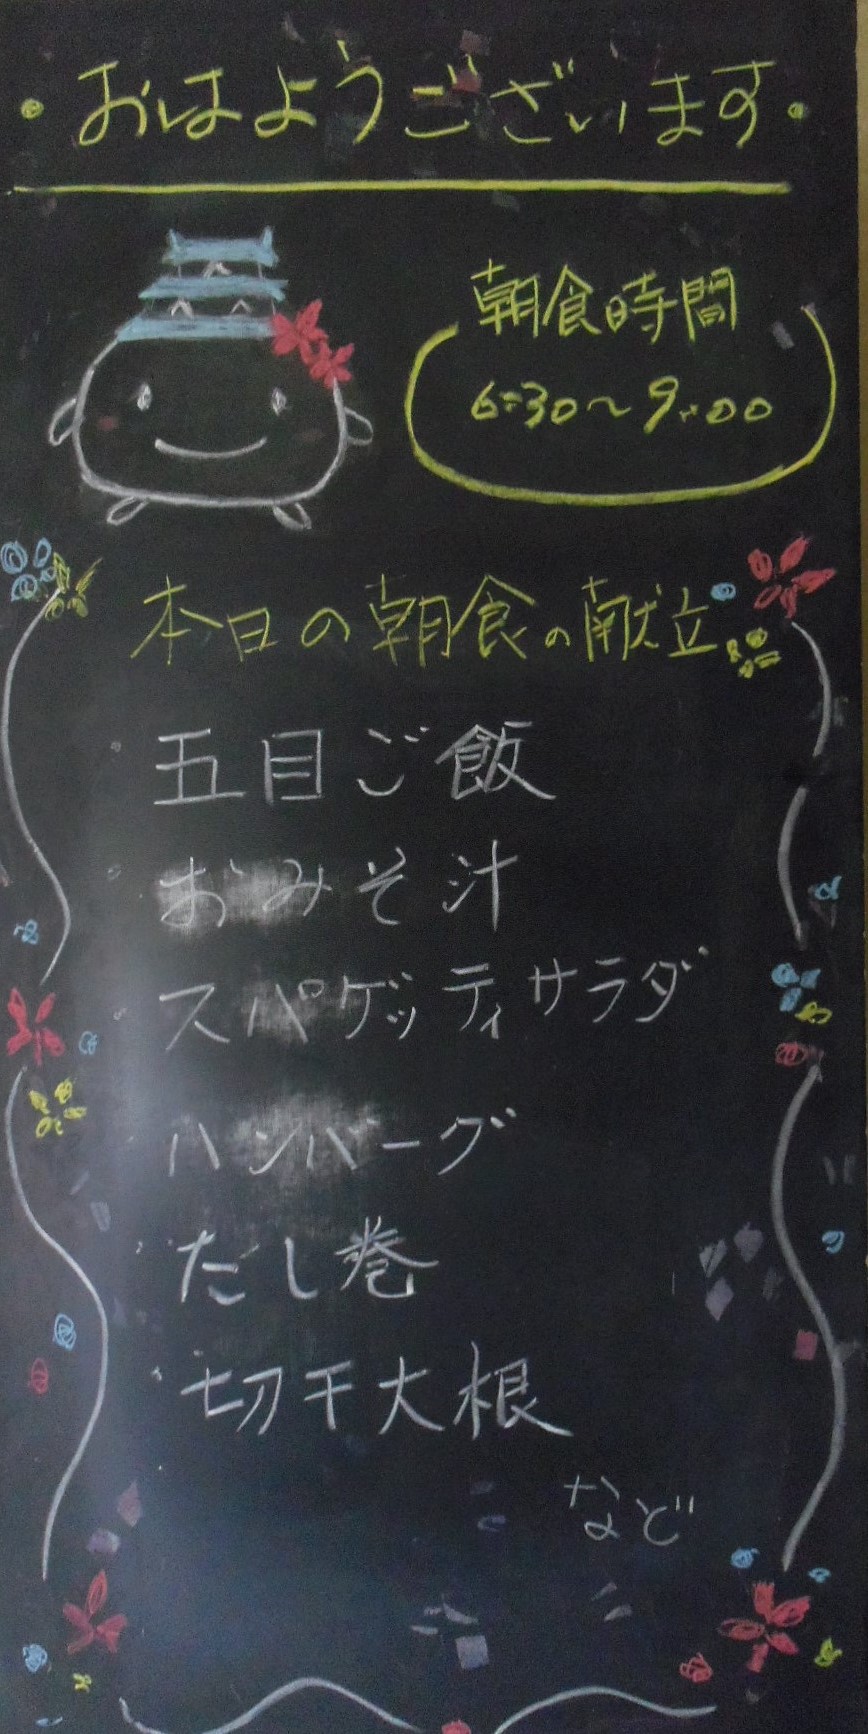 ・おはようございます・
朝食時間
6:30～9:00
本日の朝食の献立
・五目ご飯
・おみそ汁
・スパゲッティサラダ
・ハンバーグ
・だし巻
・切干大根
など